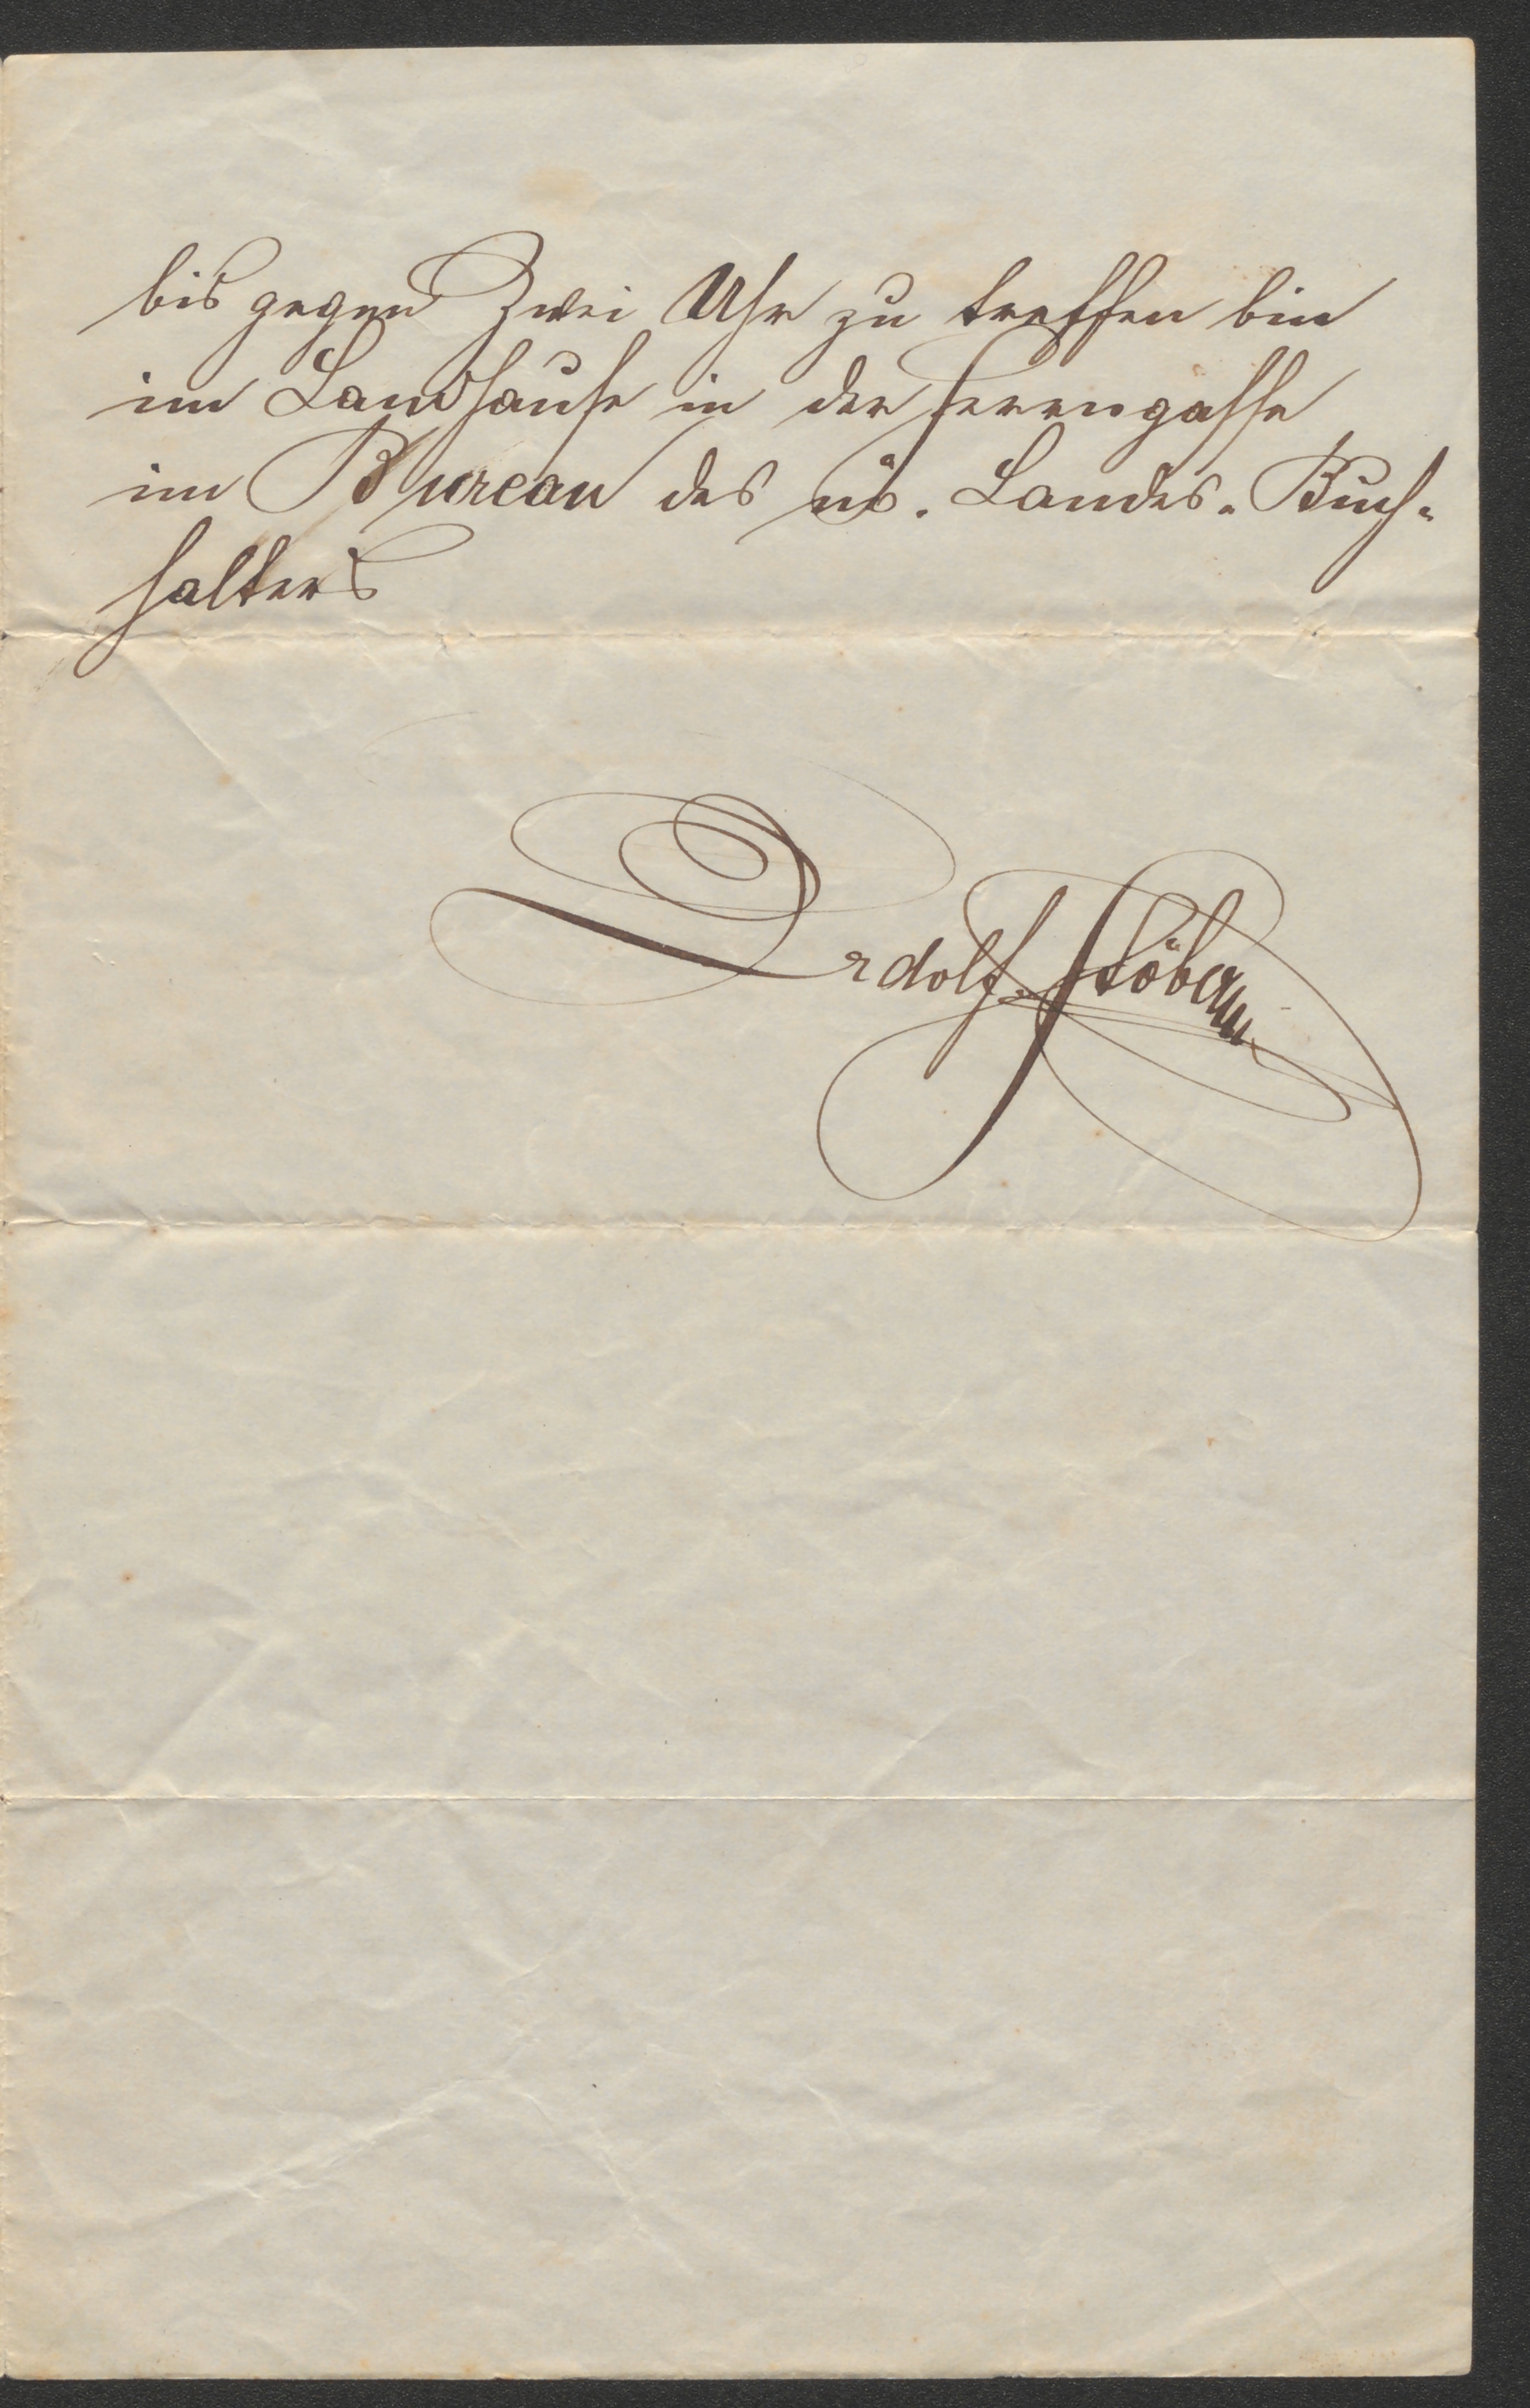 bis gegen Zwei Uhr zu treffen bin
im Landhause in der Herrengasse
im Bureau des nö. Landes-Buch-
halters